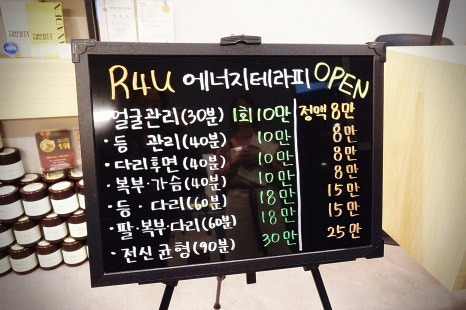 R4U 에너지테라피 OPEN
얼굴관리(30분) 1회 10만 정액 8만
· 등 관리(40분) 10만 8만
· 다리후면(40분) 10만 8만
· 복부·가슴(40분) 10만 8만
· 등 · 다리(60분) 18만 15만
· 팔·복부·다리(60분) 18만 15만
· 전신균형(90분) 30만 25만